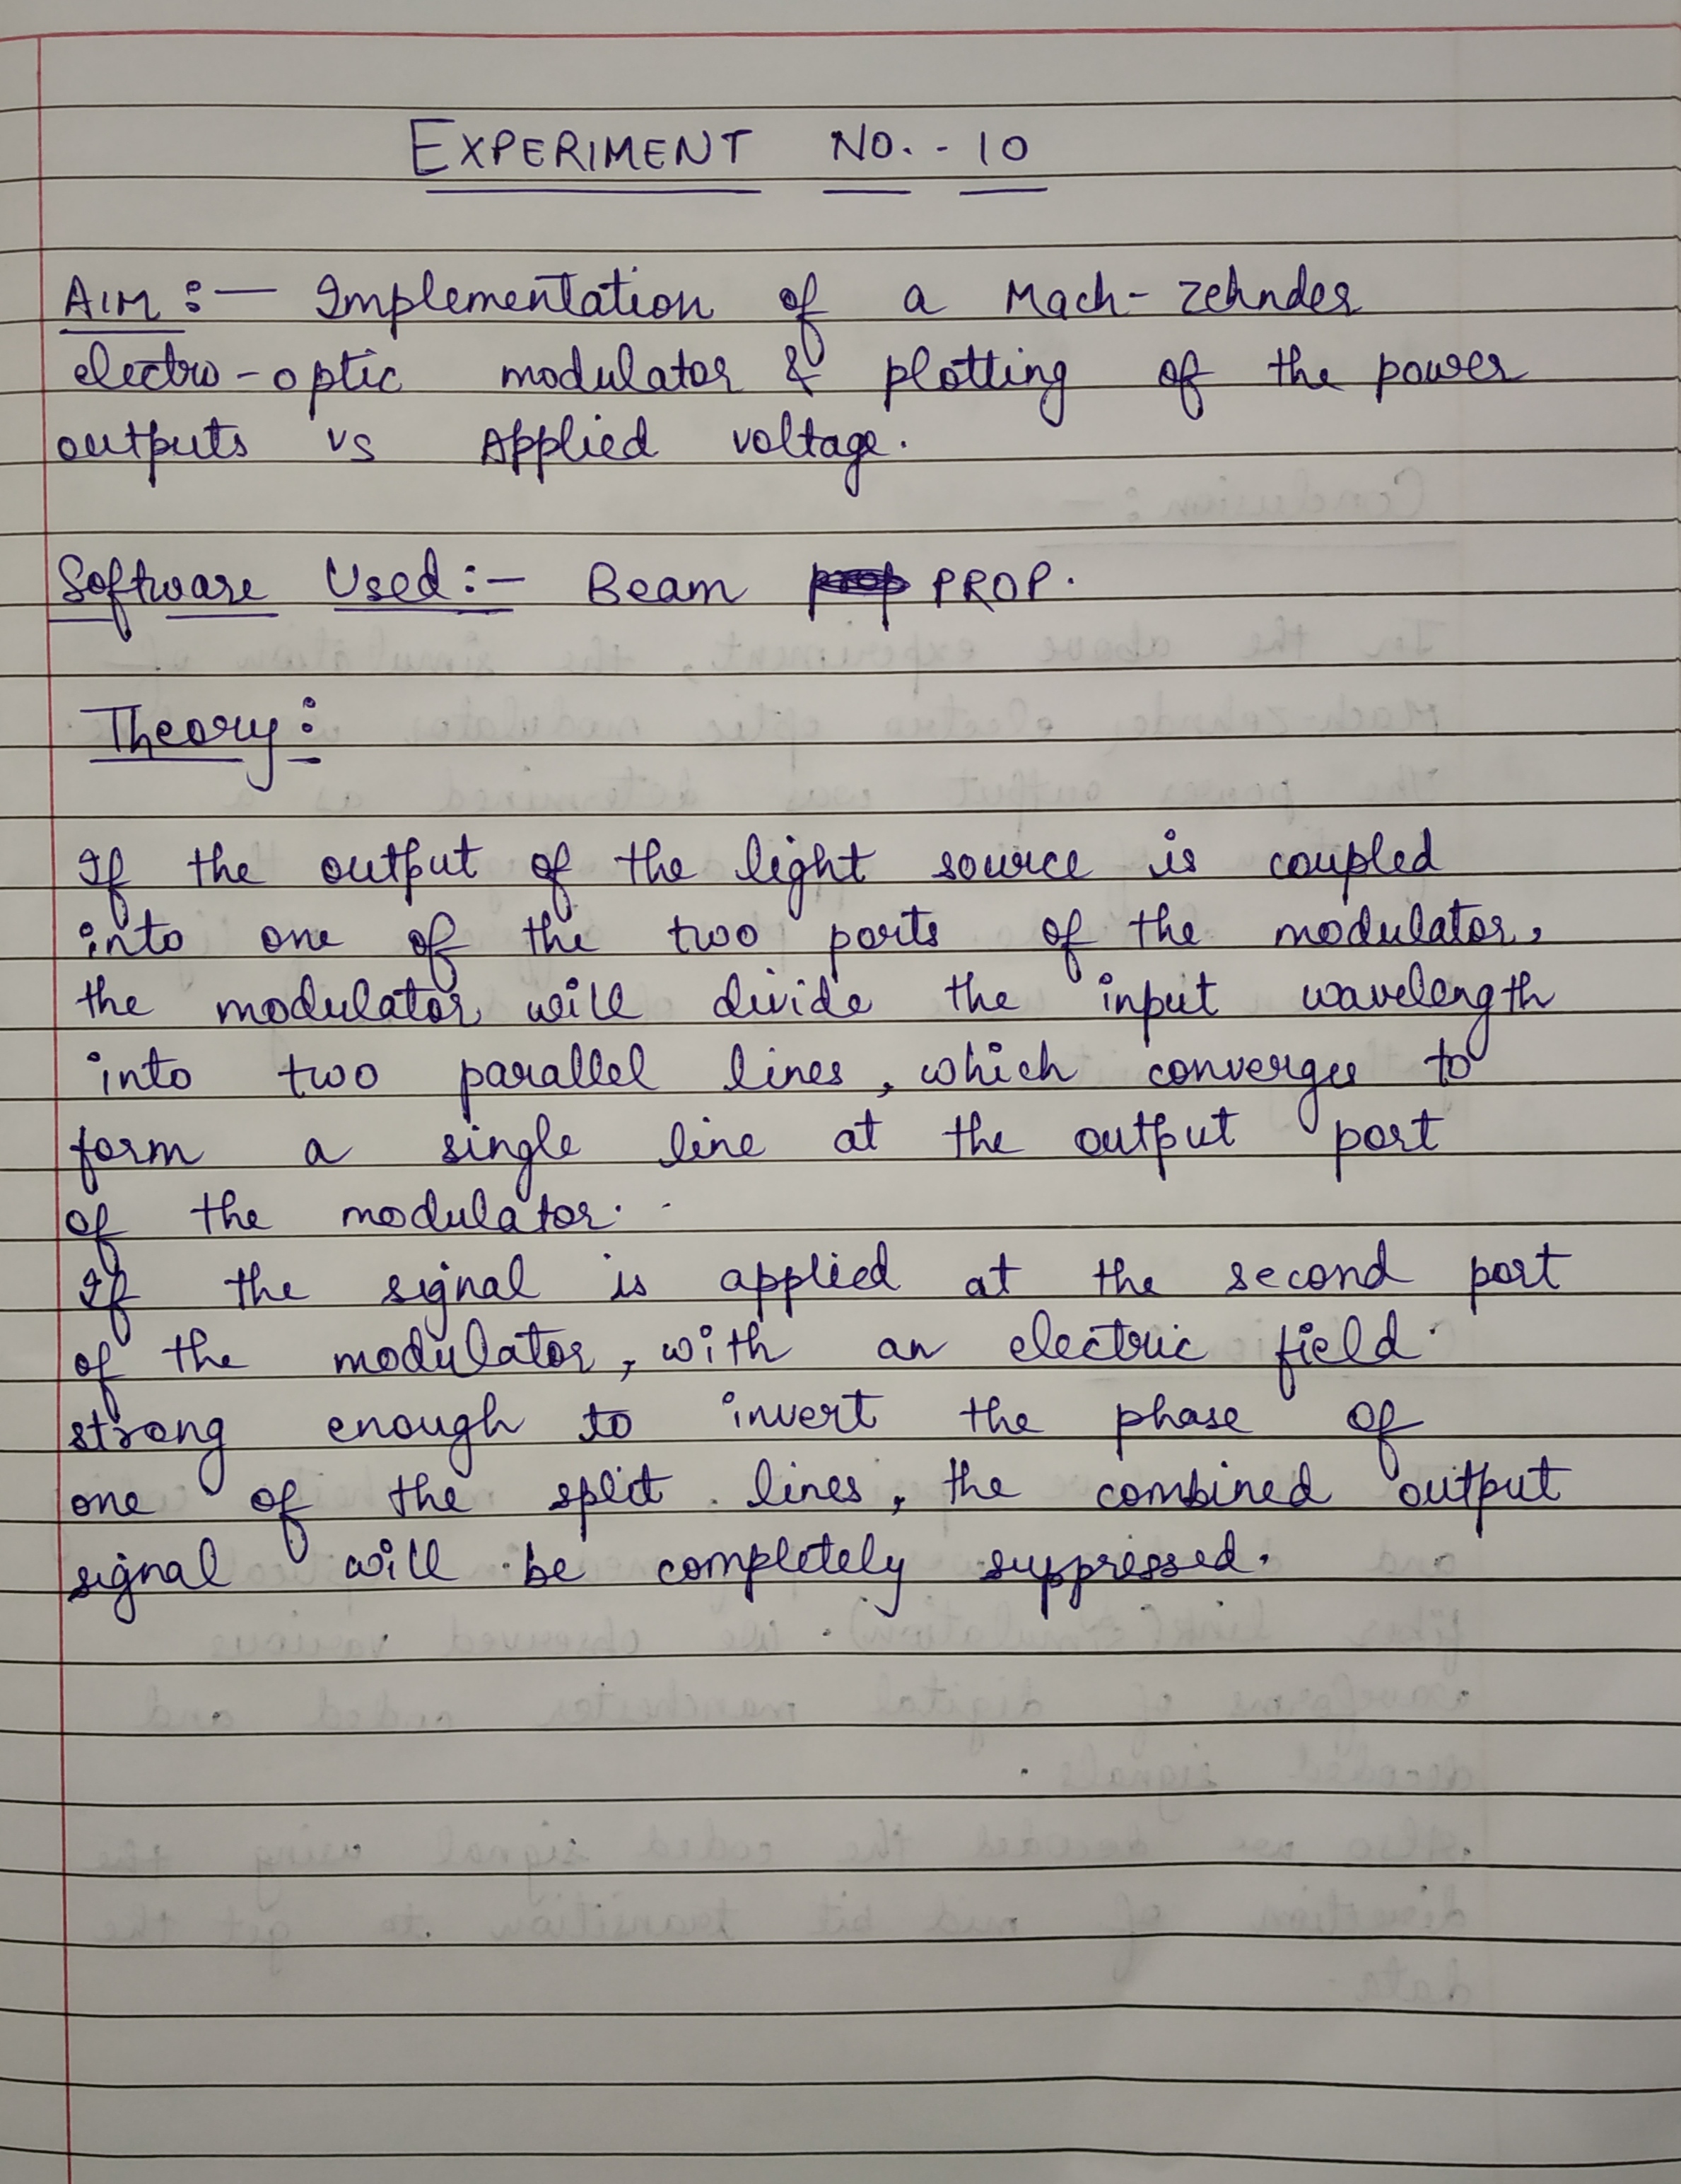 EXPERIMENT NO. - 10
AIM :- Implementation of a Mach-zehnder
electro-optic modulator & plotting of the power
outputs vs Applied voltage.
Software Used :- Beam PROP.
Theory :
If the output of the light source is coupled
into one of the two ports of the modulator,
the modulator will divide the input wavelength
into two parallel lines, which converges to
form a single line at the output port
of the modulator.
If the signal is applied at the second port
of the modulator, with an electric field
strong enough to invert the phase of
one of the split lines, the combined output
signal will be completely suppressed.